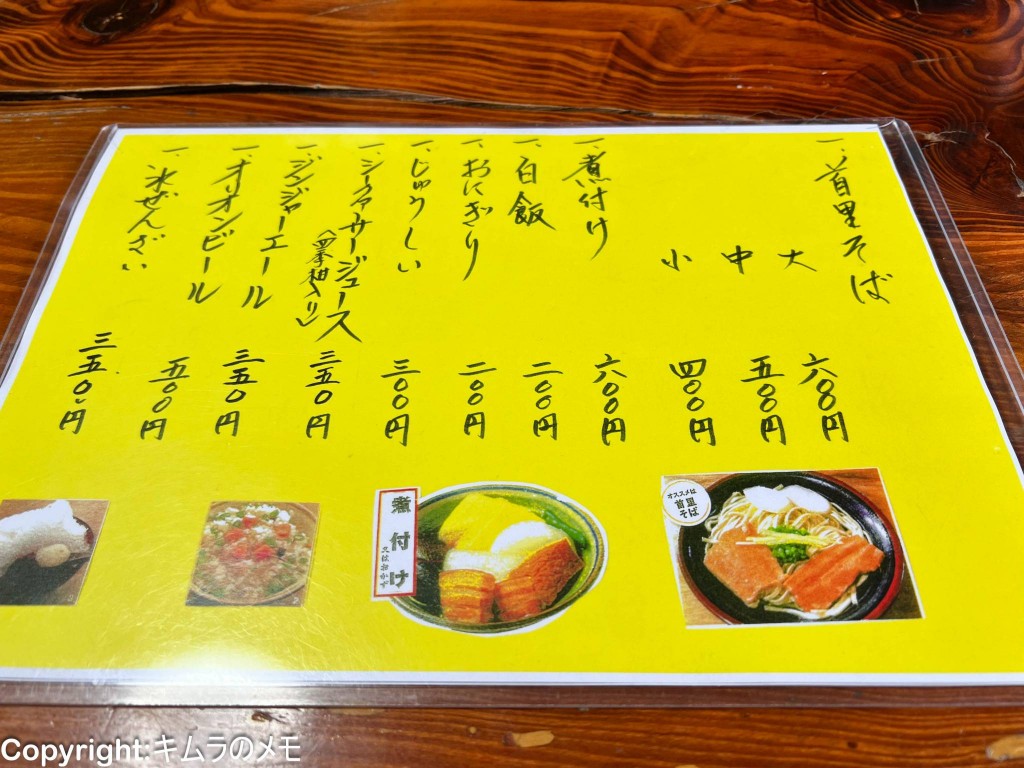 一、首里そば
大 六〇〇円
中 五〇〇円
小 四〇〇円
一、煮付け 六〇〇円
一、白飯 二〇〇円
一、おにぎり 二〇〇円
一、じゅうしい 三〇〇円
一、シークァーサージュース 三五〇円
一、ジンジャーエール 三五〇円
一、オリオンビール 五〇〇円
一、氷ぜんざい 三五〇円
オススメは
首里
そば
煮付け
又はおかず
Copyright:キムラのメモ